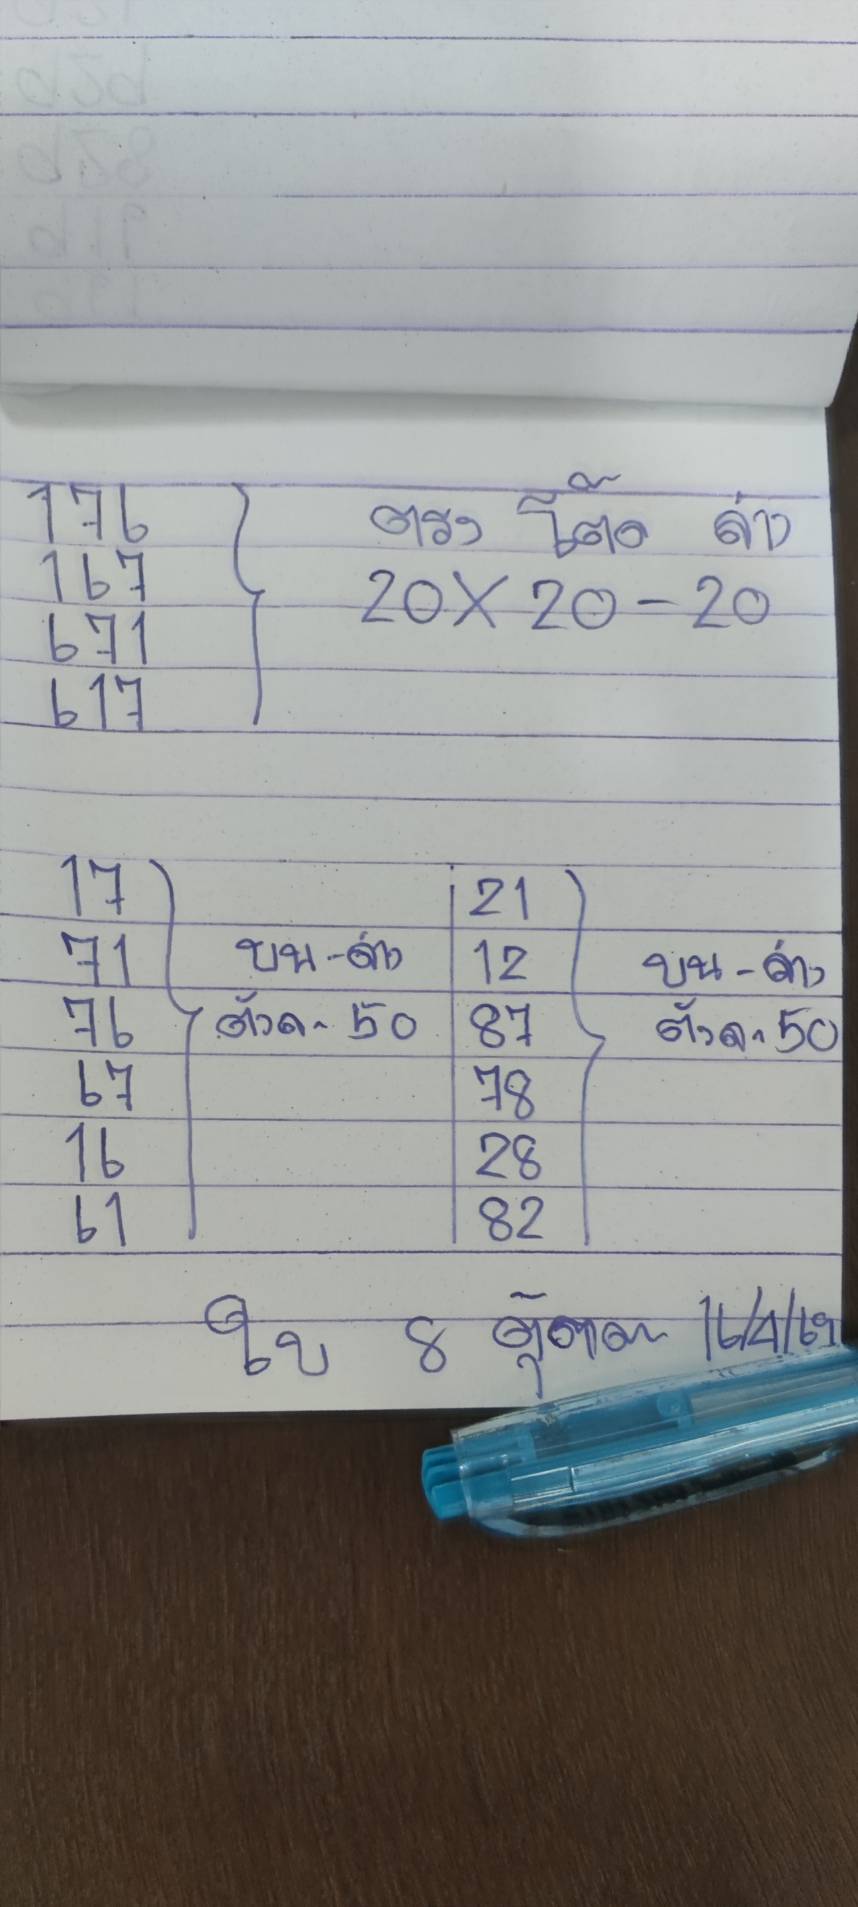 176
167
671
617
ตรง โต๊ด ล่าง
20X20-20
17
71
76
67
16
61
บน-ล่าง
ตัวละ 50
21
12
87
78
28
82
บน-ล่าง
ตัวละ 50
ใบ 8 ตุ๊กตา 16/4/69